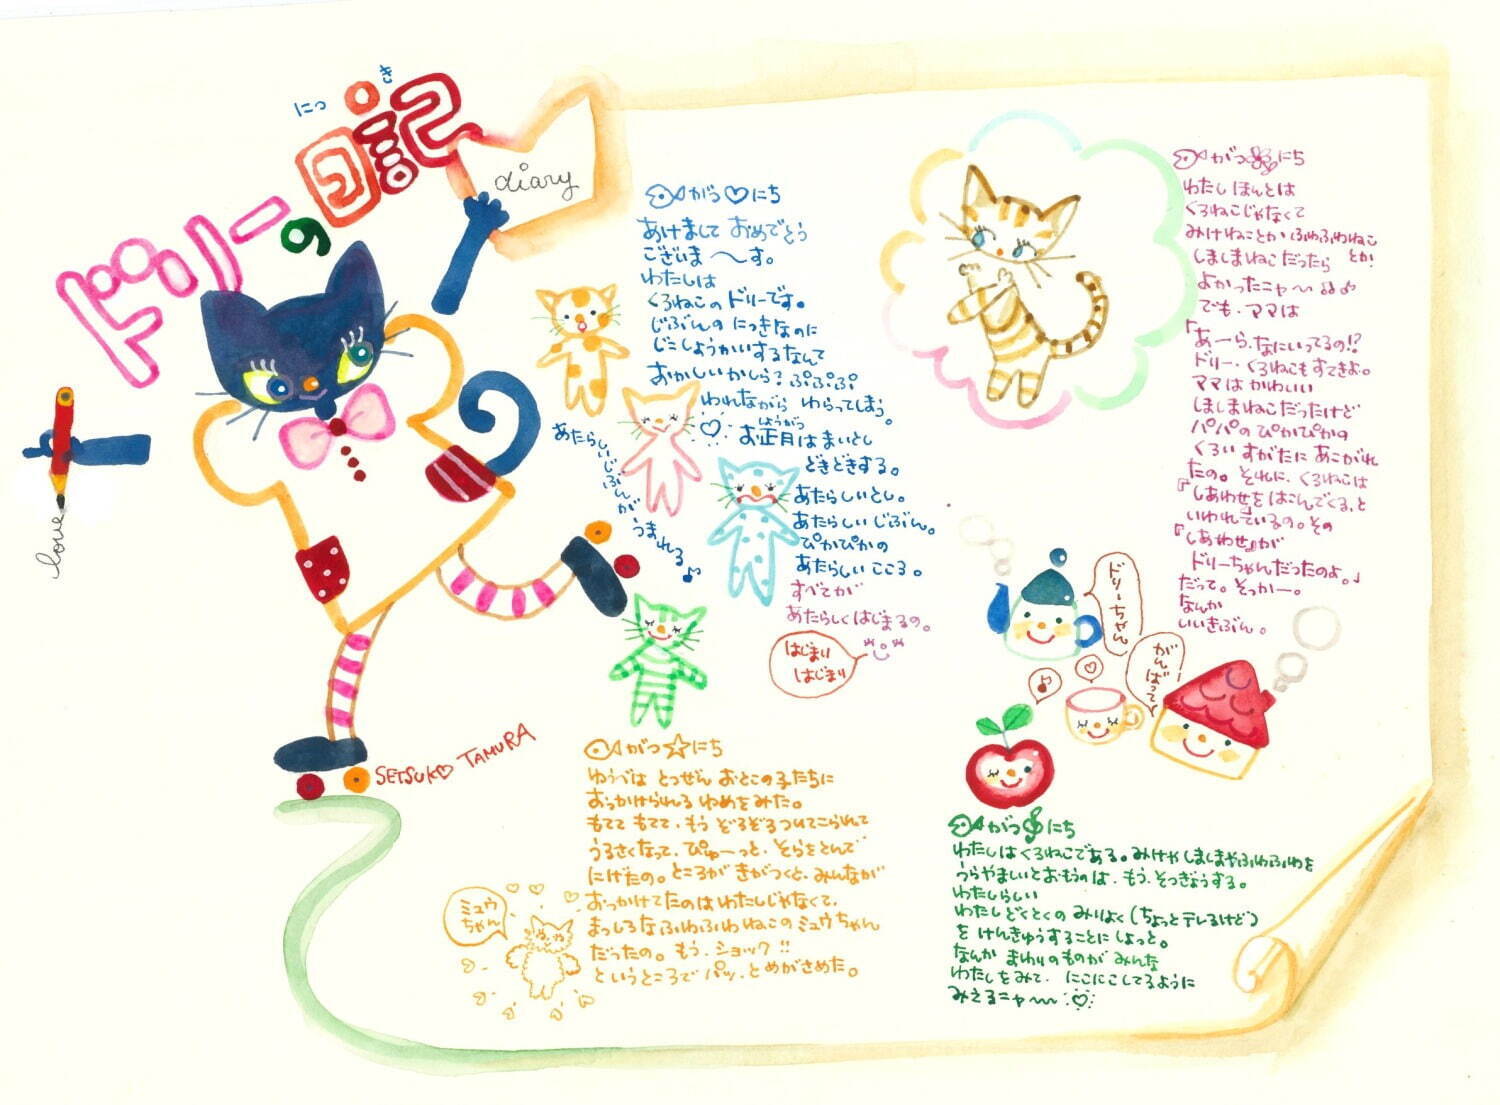 ドリーの日記
にっ
き
diary
love
SETSUKO TAMURA
がつ にち
あけまして おめでとう
ございま〜す。
わたしは
くろねこの ドリーです。
じぶんの にっきなのに
じこしょうかいするなんて
おかしいかしら? ぷぷぷぷ
われながら わらってしまう。
お正月は まいとし
しょうがつ
どきどきする。
あたらしいとし。
あたらしい じぶん。
ぴかぴかの
あたらしい こころ。
すべてが
あたらしくはじまるの。
はじまり
はじまり
あたらしいじぶんが
うまれる♪
がつ☆にち
ゆうべは とつぜん おとこの子たちに
おっかけられる ゆめをみた。
もてて もてて、もう ぞろぞろついてこられて
うるさくなって、ぴゅーっと、そらをとんで
にげたの。ところが きがつくと、みんなが
おっかけてたのはわたしじゃなくて、
まっしろなふわふわねこのミュウちゃん
だったの。もう、ショック!!
というところで パッ、とめがさめた。
ミュウ
ちゃん
がつ にち
わたし ほんとは
くろねこじゃなくて
みけねことか ふわふわねこ
とか
しましまねこだったら
よかったニャ〜 ♫♪
でも、ママは
「あーら、なにいってるの!?
ドリー、くろねこもすてきよ。
ママは かわいい
しましまねこだったけど
パパの ぴかぴかの
くろい すがたに あこがれ
たの。それに、くろねこは
『しあわせをはこんでくる』と
いわれているの。その
『しあわせ』が
ドリーちゃんだったのよ。」
だって。そっかー。
なんか
いいきぶん。
ドリーちゃん
がんばって
♪
がつ にち
わたしはくろねこである。みけや しましまやふわふわを
うらやましいとおもうのは、もう、そつぎょうする。
わたしらしい
わたしどくとくの みりょく(ちょっとテレるけど)
を けんきゅうすることに しよっと。
なんか まわりのものが みんな
わたしをみて、にこにこしてるように
みえるニャ〜